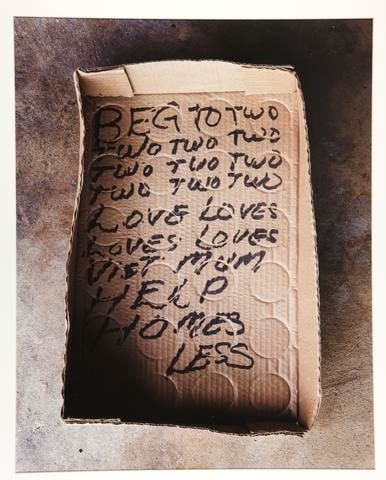 BEG TO TWO
TWO TWO TWO
TWO TWO TWO
TWO TWO TWO
LOVE LOVES
LOVES LOVES
VIET MUM
HELP
HOMES
LESS